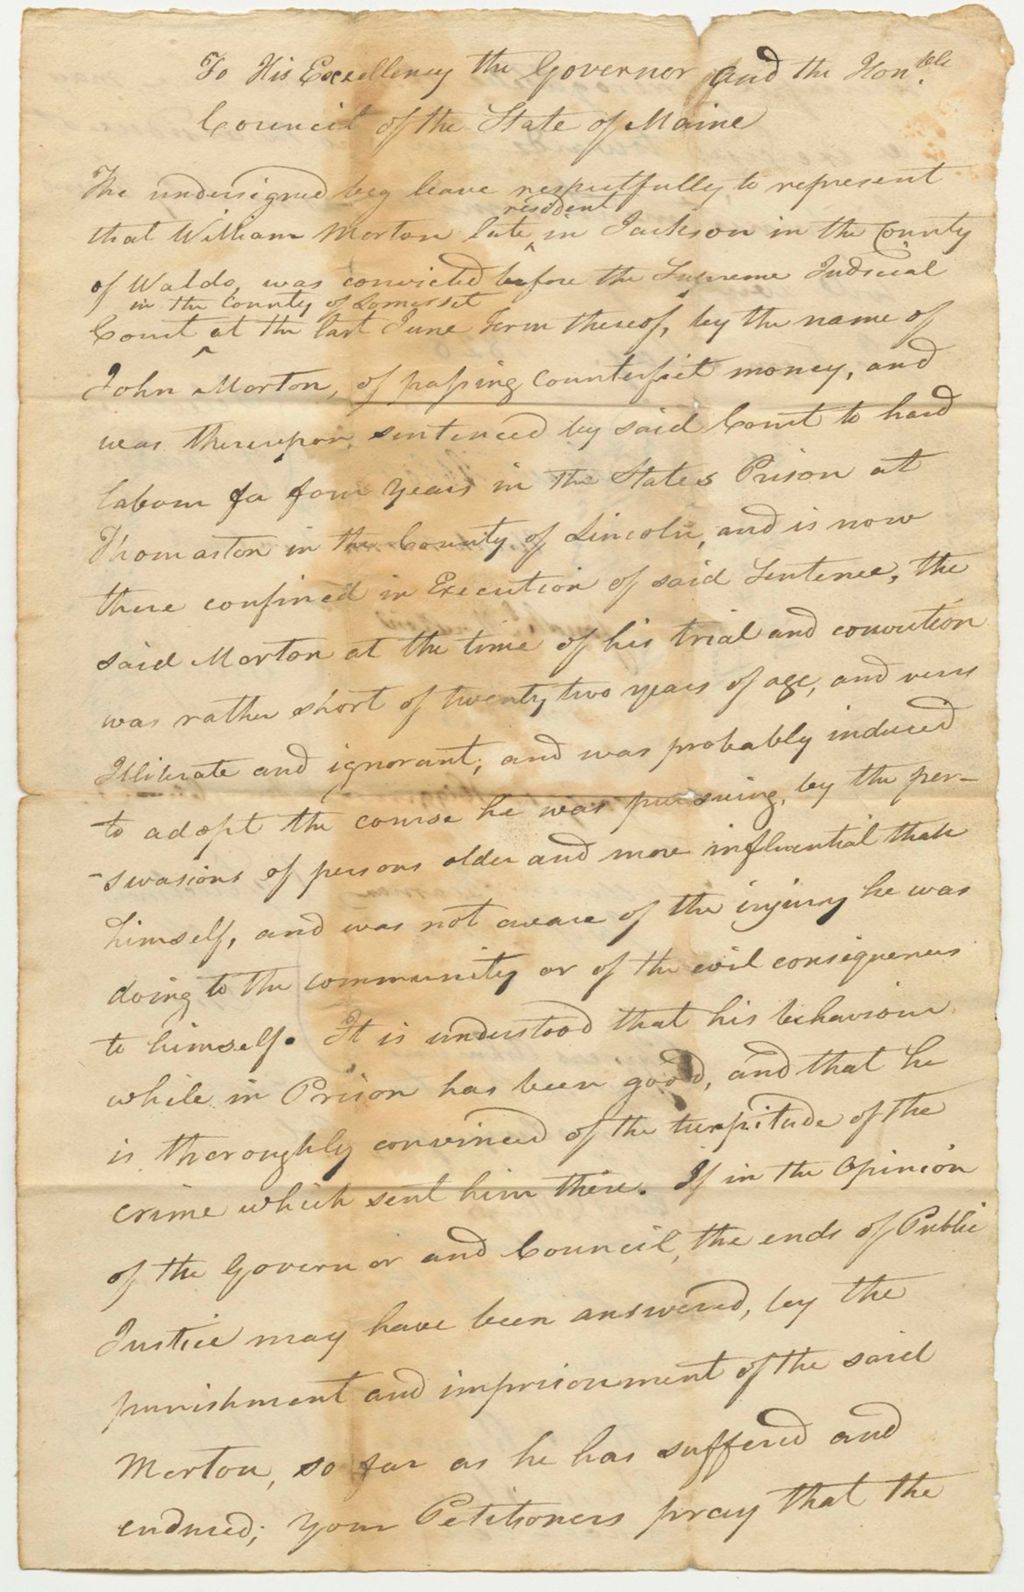 To His Excellency the Governor and the Honble.
Council of the State of Maine
The undersigned beg leave respectfully to represent
resident
that William Morton late ^ in Jackson in the County
of Waldo, was convicted before the Supreme Judicial
in the County of Somerset
Court ^ at the last June Term thereof, by the name of
John Morton, of passing Counterfeit money, and
was thereupon, sentenced by said Court to hard
labour for four years in the States Prison at
Thomaston in the County of Lincoln, and is now
there confined in Execution of said Sentence, the
said Morton at the time of his trial and conviction
was rather short of twenty two years of age, and very
Illiterate and ignorant, and was probably induced
to adopt the course he was pursuing, by the per-
-swasions of persons older and more influential than
himself, and was not aware of the injury he was
doing to the community or of the evil consequences
to himself. It is understood that his behaviour
while in Prison has been good, and that he
is thoroughly convinced of the turpitude of the
crime which sent him there. If in the Opinion
of the Governor and Council, the ends of Public
Justice may have been answered, by the
punishment and imprisonment of the said
Morton, so far as he has suffered and
endured; your Petitioners pray that the